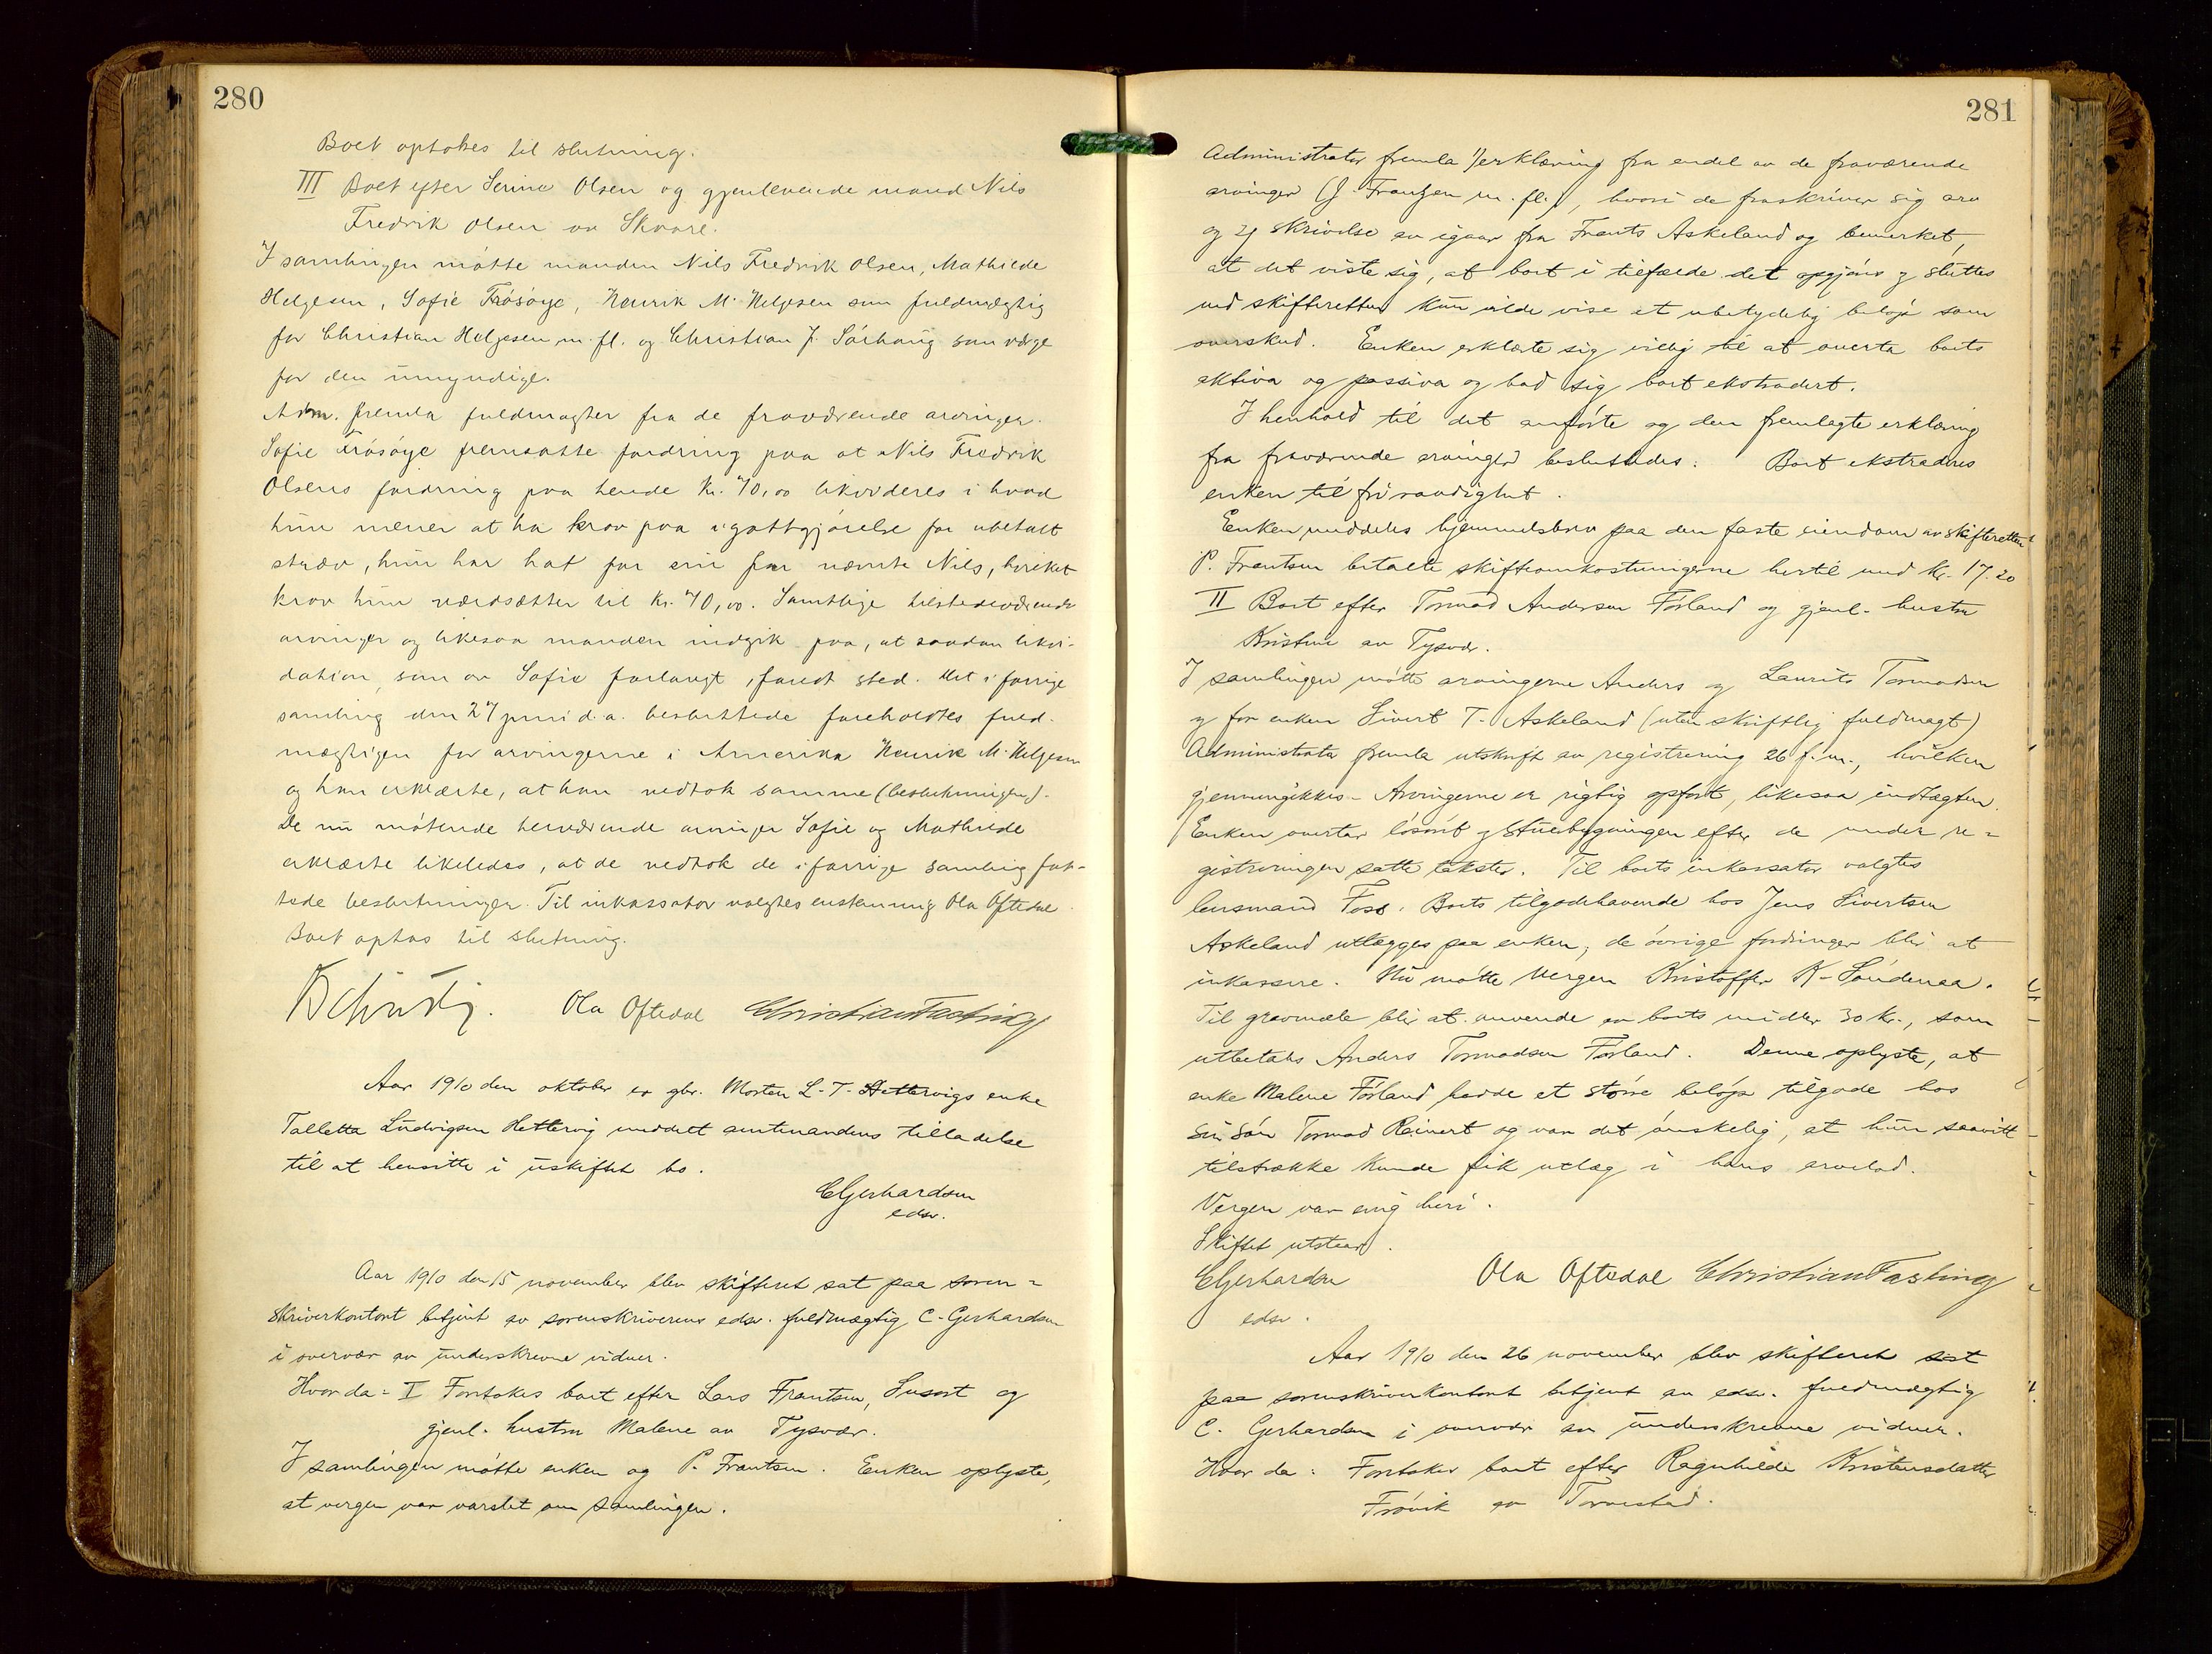 280
Boet optokes til slutning.
III Boet efter Serine Olsen og gjenlevende mand Nils
Fredrik Olsen av Skaare.
I samlingen møtte manden Nils Fredrik Olsen, Mathilde
Helgesen, Sofie Frøsøye, Henrik M. Helgesen som fuldmægtig
for Christian Helgesen m. fl. og Christian J. Sørhaug som værge
for den umyndige.
Adm. fremla fuldmagter fra de fraværende arvinger.
Sofie Frøsøye fremsatte fordring paa at Nils Fredrik
Olsens fordring paa hende Kr. 70,00 likvideres i hvad
hun mener at ha krav paa i godtgjørelse for ubetalt
stræv, hun har hat for sin far nævnte Nils, hvilket
krav hun værdsætter til Kr. 70,00. Samtlige tilstedeværende
arvinger og likesaa manden indgik paa, at saadan likvi-
dation, som av Sofie forlangt, fandt sted. Det i forrige
samling den 27 juni d.a. besluttede foreholdtes fuld-
mægtigen for arvingerne i Amerika Henrik M. Helgesen
og han erklærte, at han vedtok samme (beslutningen).
De nu møtende herværende arvinger Sofie og Mathilde
erklærte likeledes, at de vedtok de i forrige samling fat-
tede beslutninger. Til inkassator valgtes enstemmig Ola Oftedal
Boet optas til slutning.
Ola Oftedal Christian Fasting
Aar 1910 den oktober er gbr. Morten L. T. Hettervigs enke
Talletta Ludvigsen Hettervig meddelt amtmandens tilladelse
til at hensitte i uskiftet bo.
CGerhardsen
edsv.
Aar 1910 den 15 november blev skifteret sat paa soren-
skriverkontoret betjent av sorenskriverens edsv. fuldmægtig C. Gerhardsen
i overvær av underskrevne vidner.
Hvor da: I Foretokes boet efter Lars Frantsen, Susort og
gjenl. hustru Malene av Tysvær.
I samlingen møtte enken og P. Frantsen. Enken oplyste,
at vergen var varslet om samlingen.
281
Administrator fremla 1) erklæring fra endel av de fraværende
arvinger (J. Frantzen m. fl.), hvori de fraskriver sig arv
og 2) skrivelse av igaar fra Frants Askeland og bemerket,
at det viste sig, at boet i tilfælde det opgjøres og sluttes
ved skifteretten kun vilde vise et ubetydelig beløp som
overskud. Enken erklærte sig villig til at overta boets
aktiva og passiva og bad sig boet ekstradert.
I henhold til det anførte og den fremlagte erklæring
fra fraværende arvinger besluttedes: Boet ekstraderes
enken til fri raadighet.
Enken meddeles hjemmelsbrev paa den faste eiendom av skifteretten
P. Frantsen betalte skifteomkostningerne hertil med Kr. 17.20
II Boet efter Tormod Andersen Førland og gjenl. hustru
Kristine av Tysvær.
I samlingen møtte arvingerne Anders og Laurits Tormodsen
og for enken Sivert T. Askeland (uten skriftlig fuldmagt)
Administrator fremla utskrift av registrering 26 f. m., hvilken
gjennemgikkes. Arvingerne er rigtig opført, likesaa indtægten.
Enken overtar løsøret og stuebygningen efter de under re-
gistreringen satte takster. Til boets inkassator valgtes
lensmand Foss. Boets tilgodehavende hos Jens Sivertsen
Askeland utlægges paa enken, de øvrige fordringer blir at
inkassere. Nu møtte vergen Kristoffer K. Søndenaa.
Til gravmæle blir at anvende av boets midler 30 kr., som
utbetales Anders Tormodsen Førland. Denne oplyste, at
enke Malene Førland hadde et større beløp tilgode hos
sin søn Tormod Reinert og var det ønskelig, at hun saavitt
tilstrække kunde fik utlæg i hans arvelod.
Vergen var enig heri.
Skiftet utstaar.
CGerhardsen Ola Oftedal Christian Fasting
edsv.
Aar 1910 den 26 november blev skifteret sat
paa sorenskriverkontoret betjent av edsv. fuldmægtig
C. Gerhardsen i overvær av underskrevne vidner.
Hvor da: Foretokes boet efter Ragnhilde Kristensdatter
Frøvik av Torvestad.